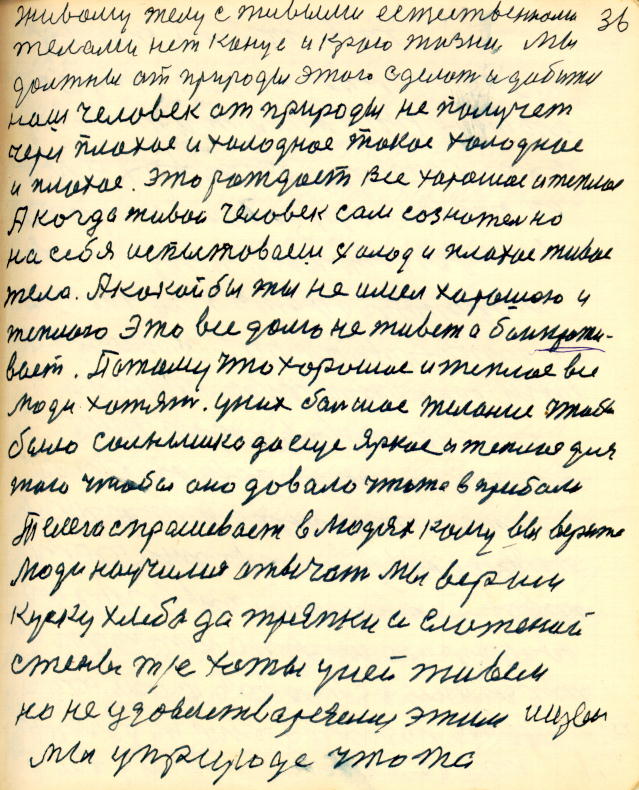 36
живому телу с живыми естественноми
телами нет конца и краю жизни Мы
должны от природы этого сделат и добыти
наш человек от природы не получет
через плохое и холодное такое холодное
и плохое. Это рождает все хорошое и теплое
А когда живой человек сам сознателно
на себя испытоваеш холод и плохое живое
тело. А какой бы ты не имел хорошого и
теплого Это все долго не живет а
вает. Потому что хорошое и теплое все
люди хотят. у них балшое желание чтобы
было солнышко да еще яркое и теплое для
того чтобы оно довало чтото в прибал
Телега спрашевает в людях кому вы верите
Люди научилис отвечат мы верим
куску хлеба да тряпки и сложеной
стены где хаты у ней живем
но не удовлетваряемся этим ищем
мы у природе чтота